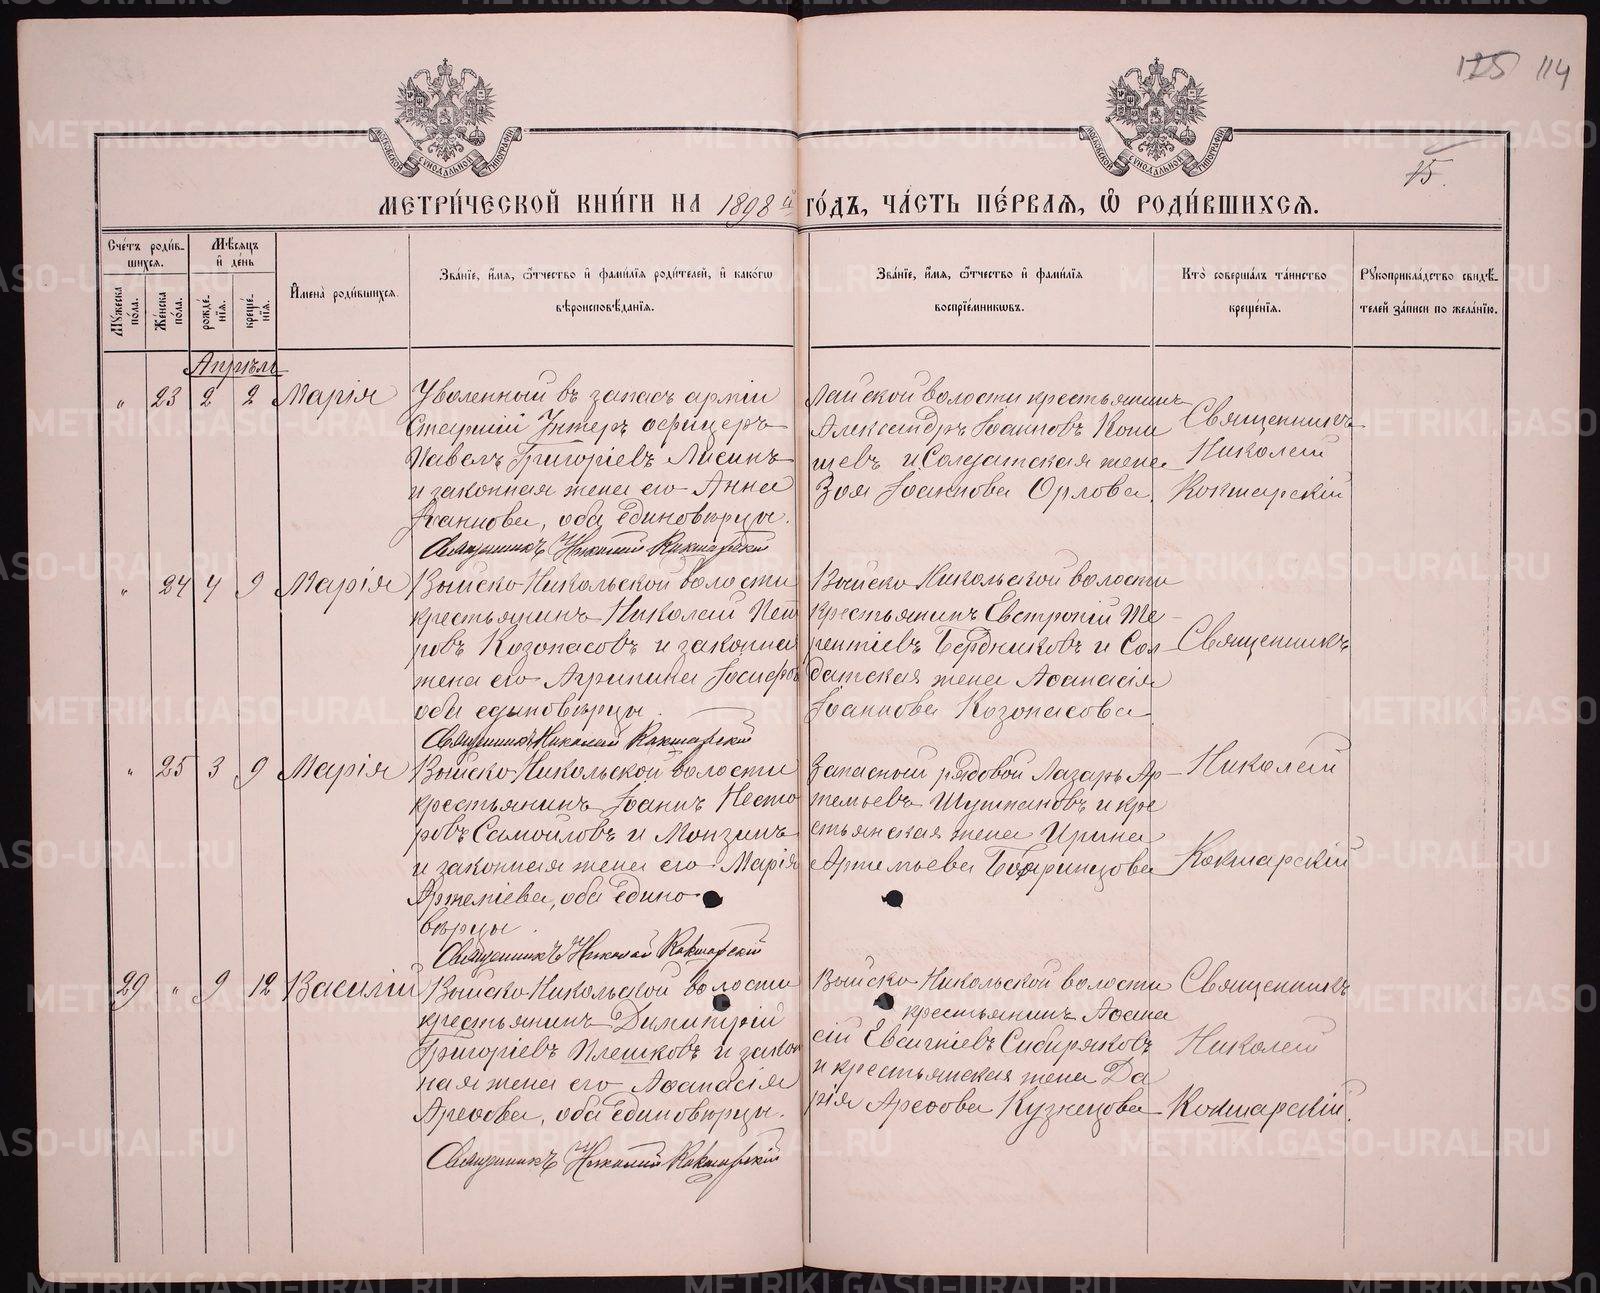 125 114
15.
МЕТРИ́ЧЕСКОЙ КНИ́ГИ НА 1898 й ГО́ДЪ, ЧА́СТЬ ПЕ́РВАЯ, Ѽ РОДИ́ВШИХСЯ.
Сче́тъ роди́в-
шихся.
Мѣ́сяцъ
и҆ де́нь
Мꙋ́жеска по́ла.
Же́нска по́ла.
рожде́-
нїѧ.
креще́-
нїѧ.
И҆мена̀ роди́вшихся.
Зва́нїе, и҆́мя, ѻ҆́тчество и҆ фами́лїя роди́телей, и҆ како́гѡ
вѣроисповѣ́данїѧ.
Зва́нїе, и҆́мя, ѻ҆́тчество и҆ фами́лїя
воспрїе́мникѡвъ.
Кто̀ соверша́лъ та́инство
креще́нїѧ.
Рꙋкоприкла́дство свидѣ́-
телей за́писи по жела́нїю.
Апрѣль
„ 23 2 2 Марія
Уволенный въ запасъ арміи
Старшій Унтеръ офицеръ
Павелъ Григоріевъ Лисинъ
и законная жена его Анна
Іоаннова, оба единовѣрцы.
Священникъ Николай Кокшарскій
Лайской волости крестьянинъ
Александръ Іоанновъ Кони
щевъ и Солдатская жена
Зоя Іоаннова Орлова.
Священникъ
Николай
Кокшарскій
„ 24 4 9 Марія
Выйско Никольской волости
крестьянинъ Николай Пет
ровъ Козопасовъ и законная
жена его Агрипина Іосифов
оба едыновѣрцы.
Священникъ Николай Кокшарскій
Выйско Никольской волости
крестьянинъ Евстропій Те-
рентіевъ Бердниковъ и Сол-
датская жена Аѳанасія
Іоаннова Козопасова
Священникъ
„ 25 3 9 Марія
Выйско Никольской волости
крестьянинъ Іоаннъ Несто
ровъ Самойловъ и Монзинъ
и законная жена его Марія
Артеміева, оба едино-
вѣрцы.
Священникъ Николай Кокшарскій
Запасный рядовой Лазарь Ар-
темьевъ Шутпановъ и кре
стьянская жена Ирина
Артемьева Боѣринцова
Николай
Кокшарскій
29 „ 9 12 Василій
Выйско Никольской волости
крестьянинъ Димитрій
Григоріевъ Плешковъ и закон
ная жена его Аѳанасія
Ареѳова, оба единовѣрцы.
Священникъ Николай Кокшарскій
Выйско Никольской волости
крестьянинъ Аѳана
сій Евгеніевъ Сибиряковъ
и крестьянская жена Да
рія Ареѳова Кузнецова
Священникъ
Николай
Кокшарскій.
METRIKI.GASO-URAL.RU